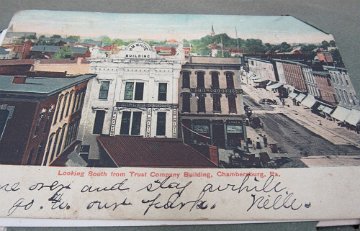 BUILDING
Looking South from Trust Company Building, Chambersburg, Pa.
over and stay awhile
go to our park. Nelle.